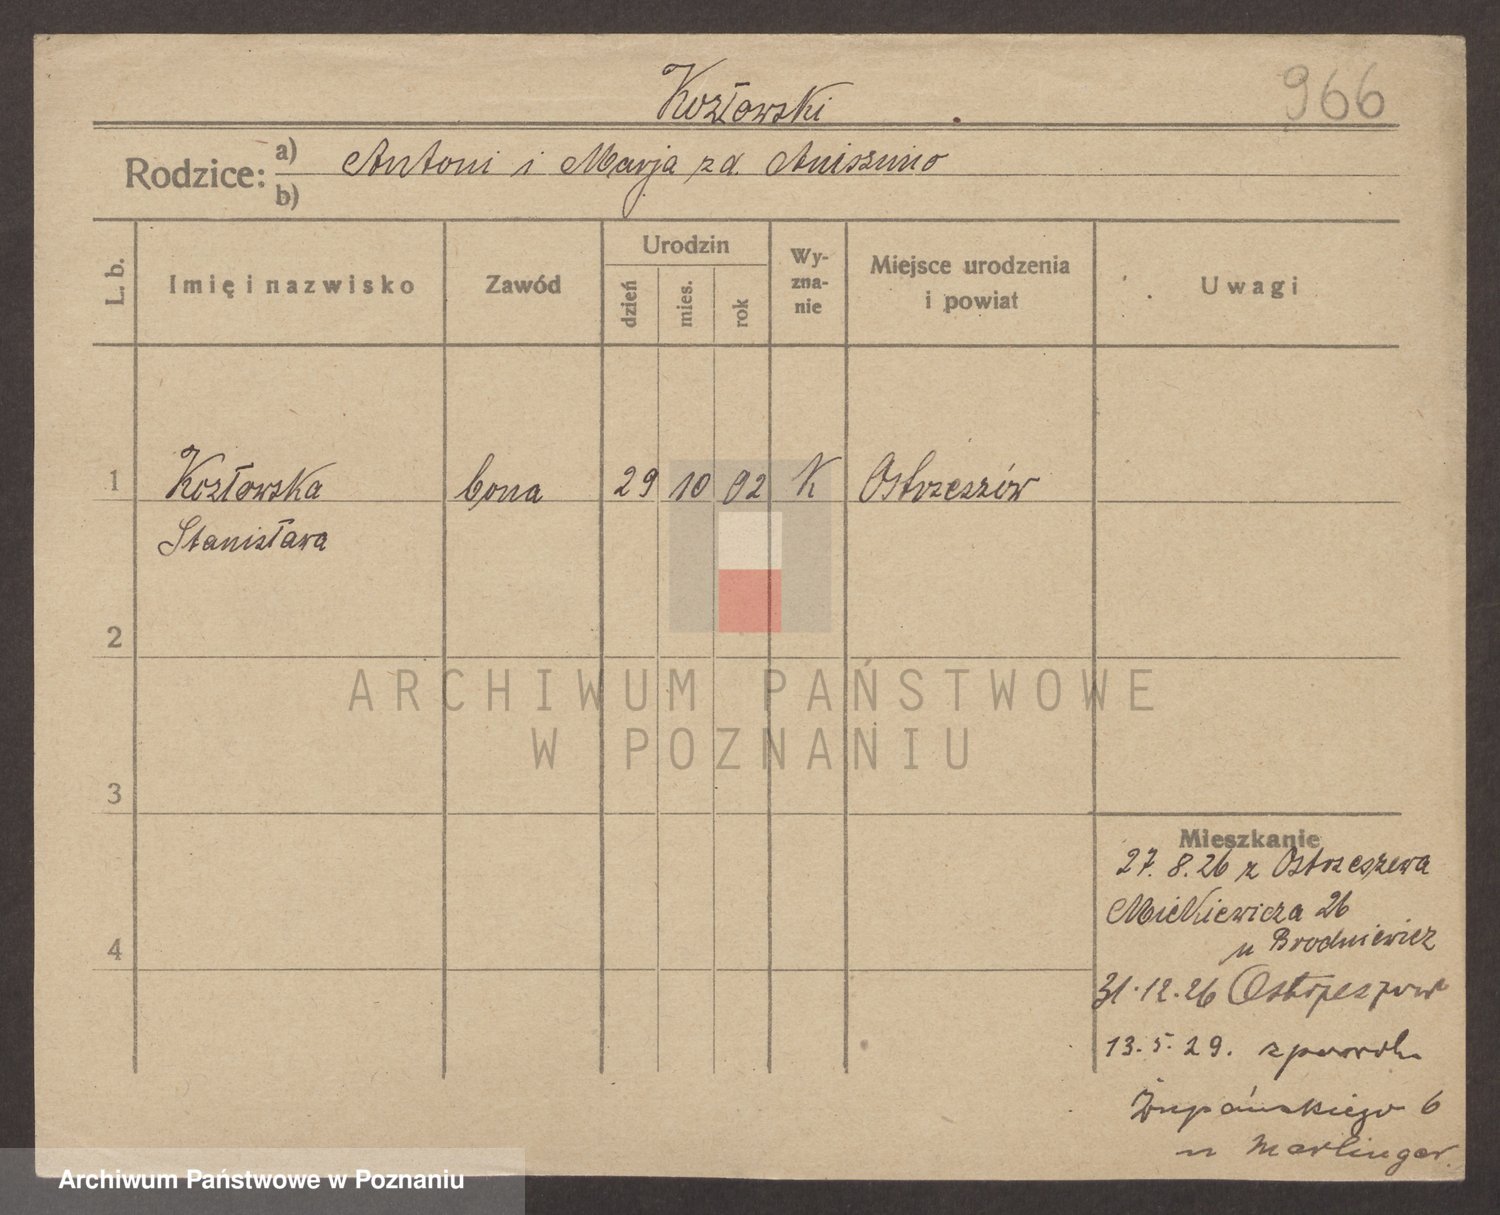 Kozłowski
966
Rodzice: a) Antoni i Marja zd. Aniszmio
b)
L. b.
Imię i nazwisko
Zawód
Urodzin
dzień
mies.
rok
Wy-
zna-
nie
Miejsce urodzenia
i powiat
Uwagi
1 Kozłowska bona 29 10 02 K Ostrzeszów
Stanisława
2
3
4
ARCHIWUM PAŃSTWOWE
W POZNANIU
Mieszkanie
27. 8. 26 z Ostrzeszewa
Mickiewicza 26
u Brodniewicz
31.12.26 Ostrzeszów
13. 5. 29. z powrotem
Żupańskiego 6
u Marlinger
Archiwum Państwowe w Poznaniu